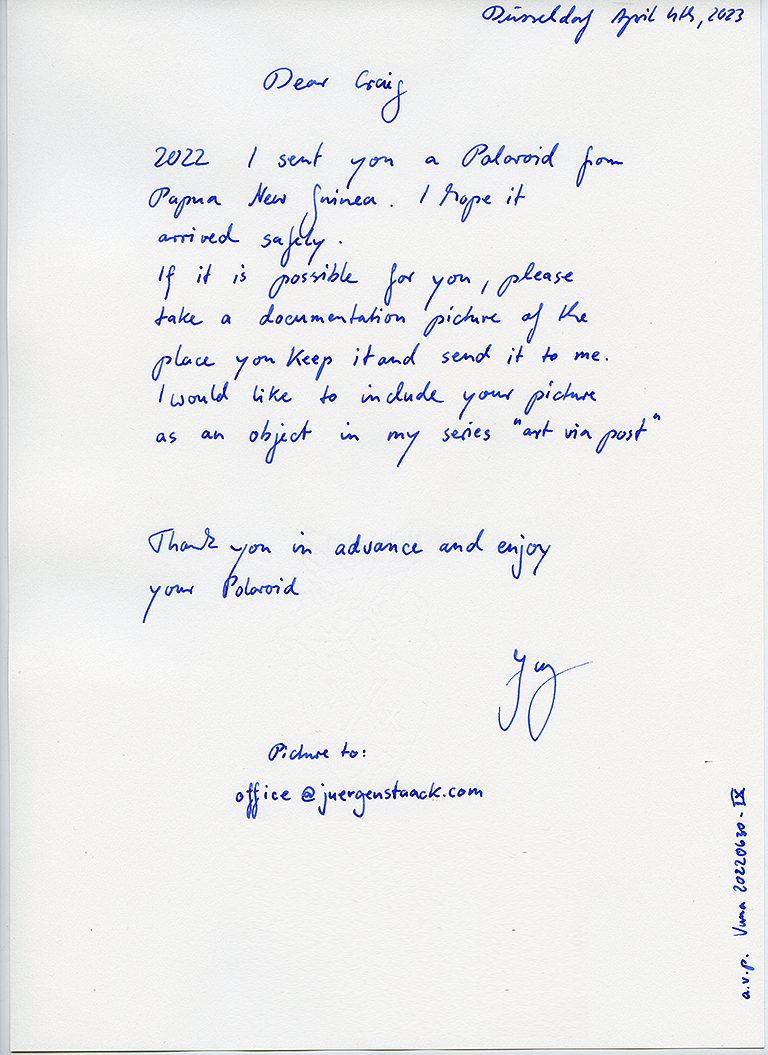 Düsseldorf April 4th, 2023
Dear Craig
2022 I sent you a Polaroid from
Papua New Guinea. I hope it
arrived safely.
If it is possible for you, please
take a documentation picture of the
place you keep it and send it to me.
I would like to include your picture
as an object in my series "art via post"
Thank you in advance and enjoy
your Polaroid
Picture to:
office@juergenstaack.com
a.v.p. 20220630-IX